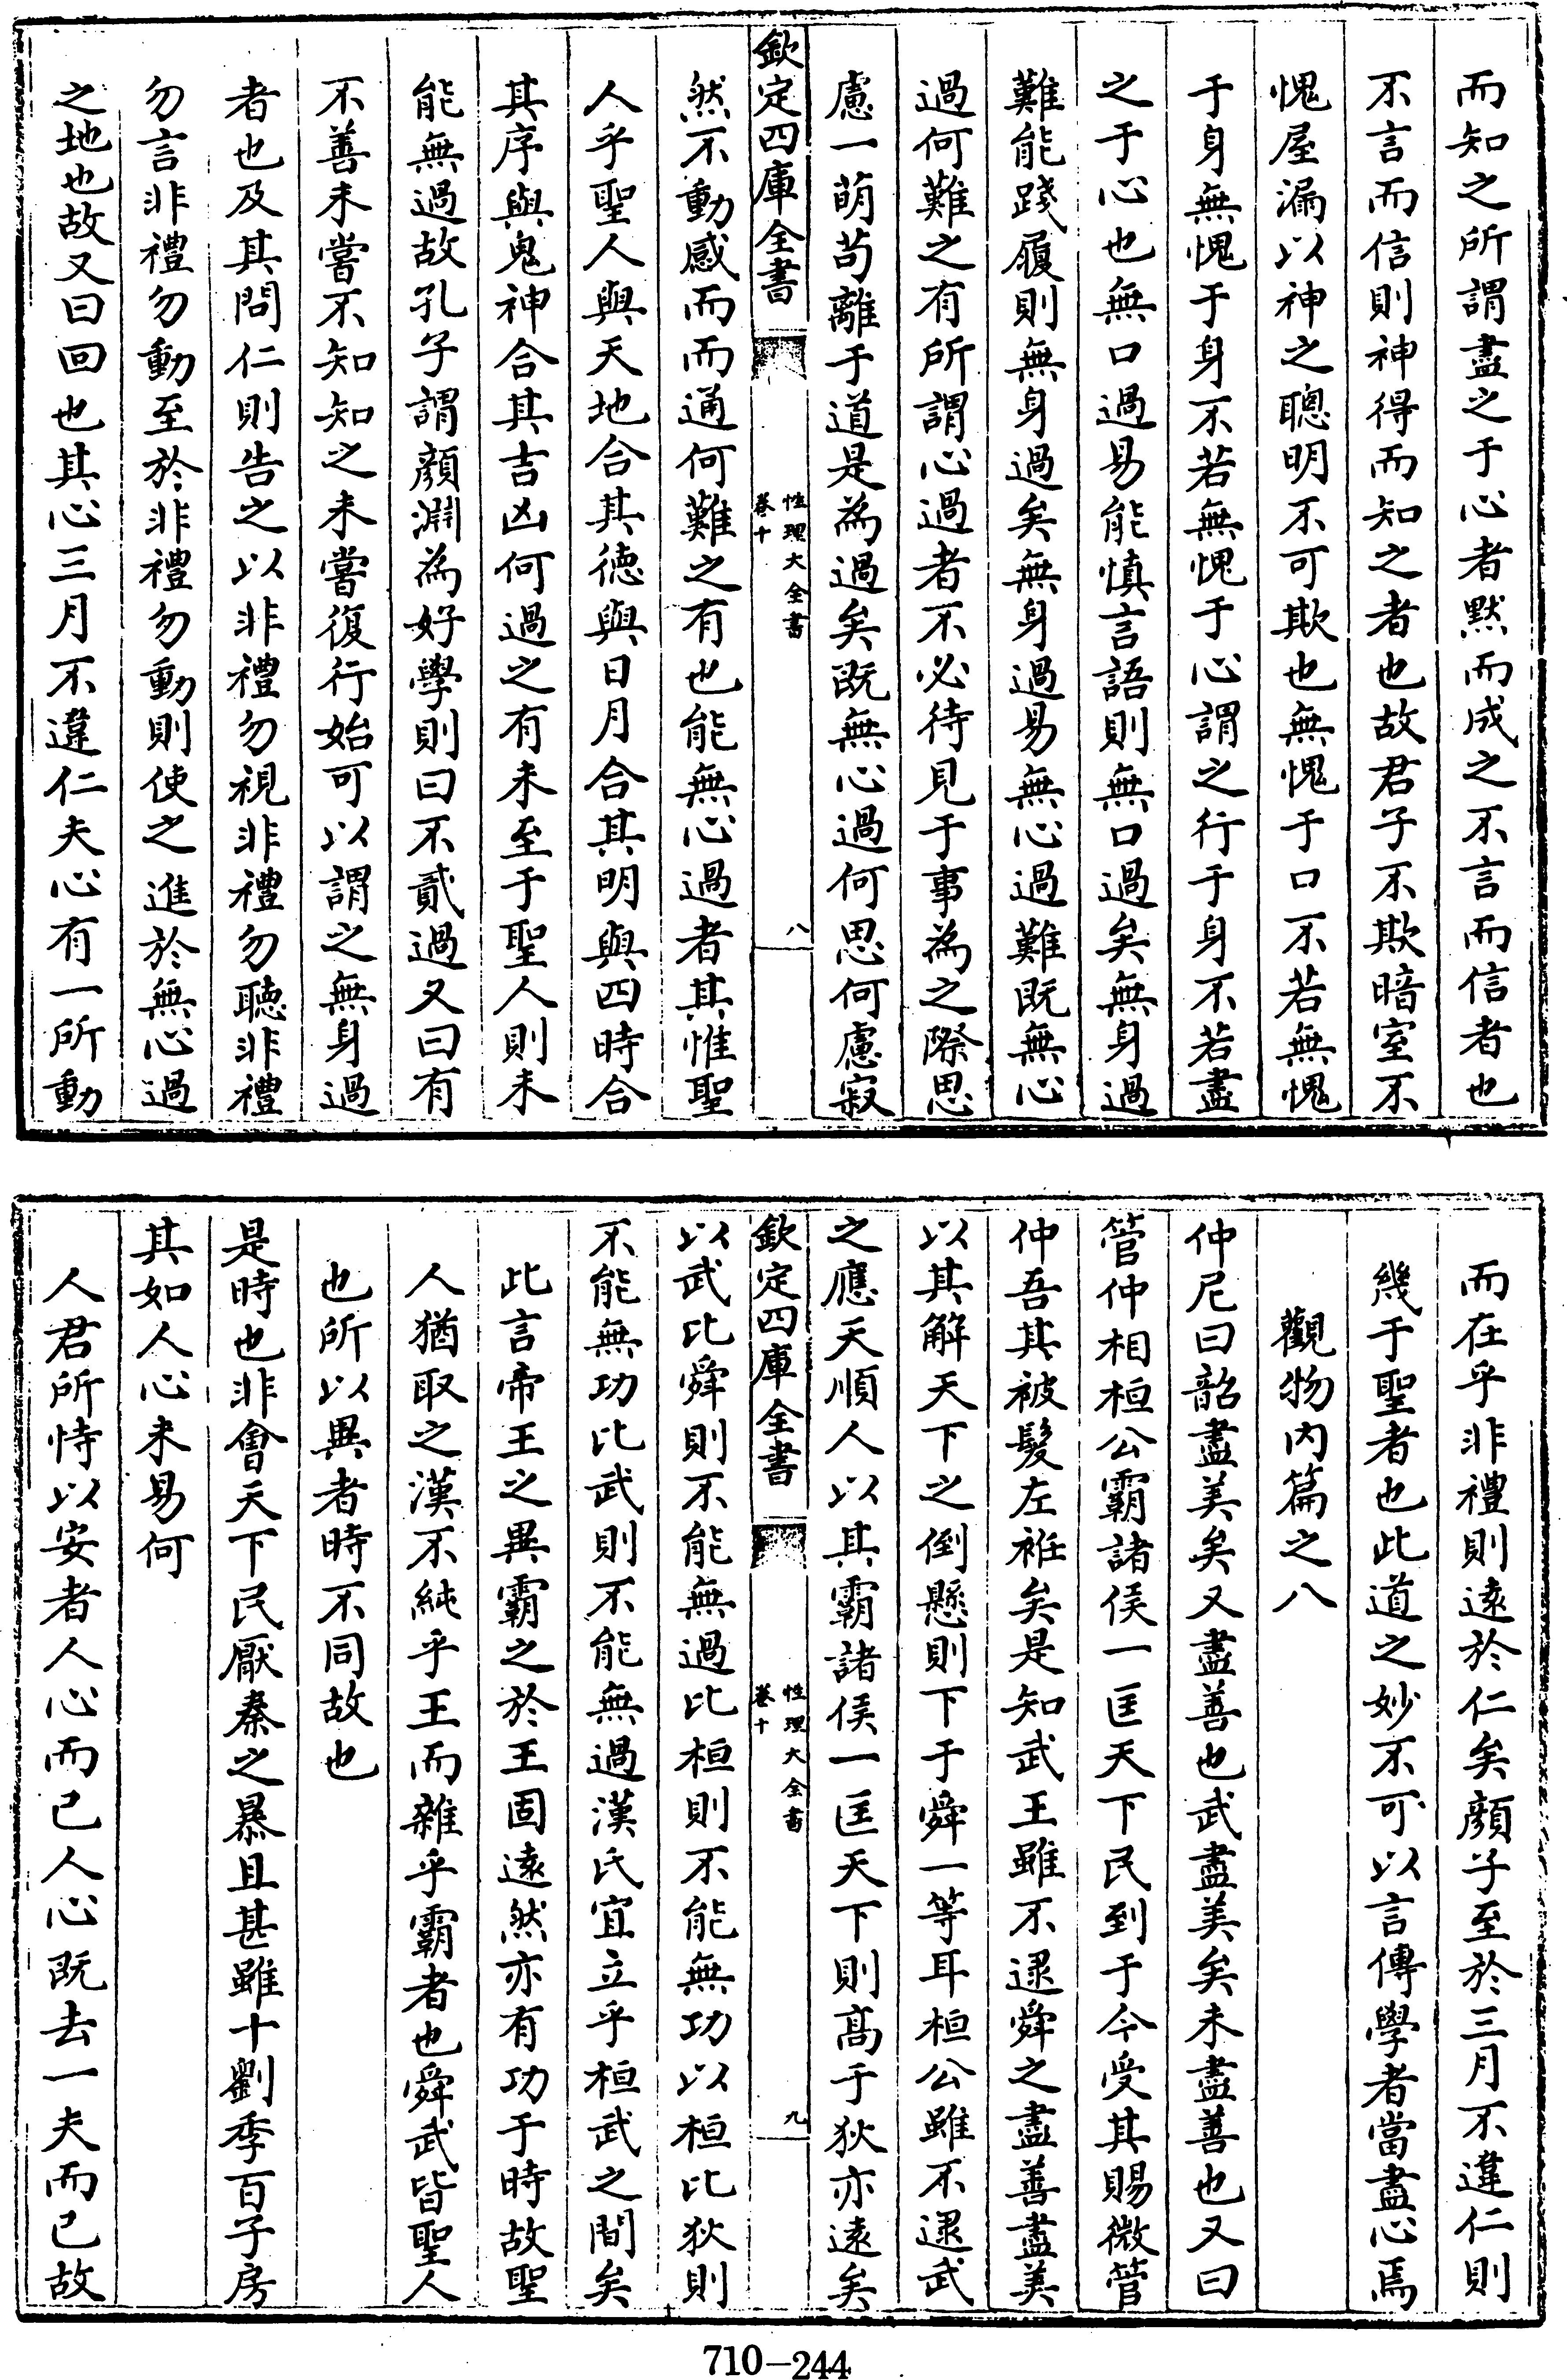 而知之所謂盡之于心者黙而成之不言而信者也
不言而信則神得而知之者也故君子不欺暗室不
愧屋漏以神之聰明不可欺也無愧于口不若無愧
于身無愧于身不若無愧于心謂之行于身不若盡
之于心也無口過易能慎言語則無口過矣無身過
難能踐履則無身過矣無身過易無心過難既無心
過何難之有所謂心過者不必待見于事為之際思
慮一萌苟離于道是為過矣既無心過何思何慮寂
欽定四庫全書
性理大全書
卷十
八
然不動感而而通何難之有也能無心過者其惟聖
人乎聖人與天地合其徳與日月合其明與四時合
其序與鬼神合其吉凶何過之有未至于聖人則未
能無過故孔子謂顔淵為好學則曰不貳過又曰有
不善未嘗不知知之未嘗復行始可以謂之無身過
者也及其問仁則告之以非禮勿視非禮勿聽非禮
勿言非禮勿動至於非禮勿動則使之進於無心過
之地也故又曰回也其心三月不違仁夫心有一所動
而在乎非禮則逺於仁矣顔子至於三月不違仁則
幾于聖者也此道之妙不可以言傳學者當盡心焉
觀物内篇之八
仲尼曰韶盡美矣又盡善也武盡美矣未盡善也又曰
管仲相桓公霸諸侯一匡天下民到于今受其賜微管
仲吾其被髮左袵矣是知武王雖不逮舜之盡善盡美
以其解天下之倒懸則下于舜一等耳桓公雖不逮武
之應天順人以其霸諸侯一匡天下則髙于狄亦逺矣
欽定四庫全書
性理大全書
卷十
九
以武比舜則不能無過比桓則不能無功以桓比狄則
不能無功比武則不能無過漢氏宜立乎桓武之間矣
此言帝王之異霸之於王固逺然亦有功于時故聖
人猶取之漢不純乎王而雜乎霸者也舜武皆聖人
也所以異者時不同故也
是時也非㑹天下民厭秦之暴且甚雖十劉季百子房
其如人心未易何
人君所恃以安者人心而已人心既去一夫而已故
710-244